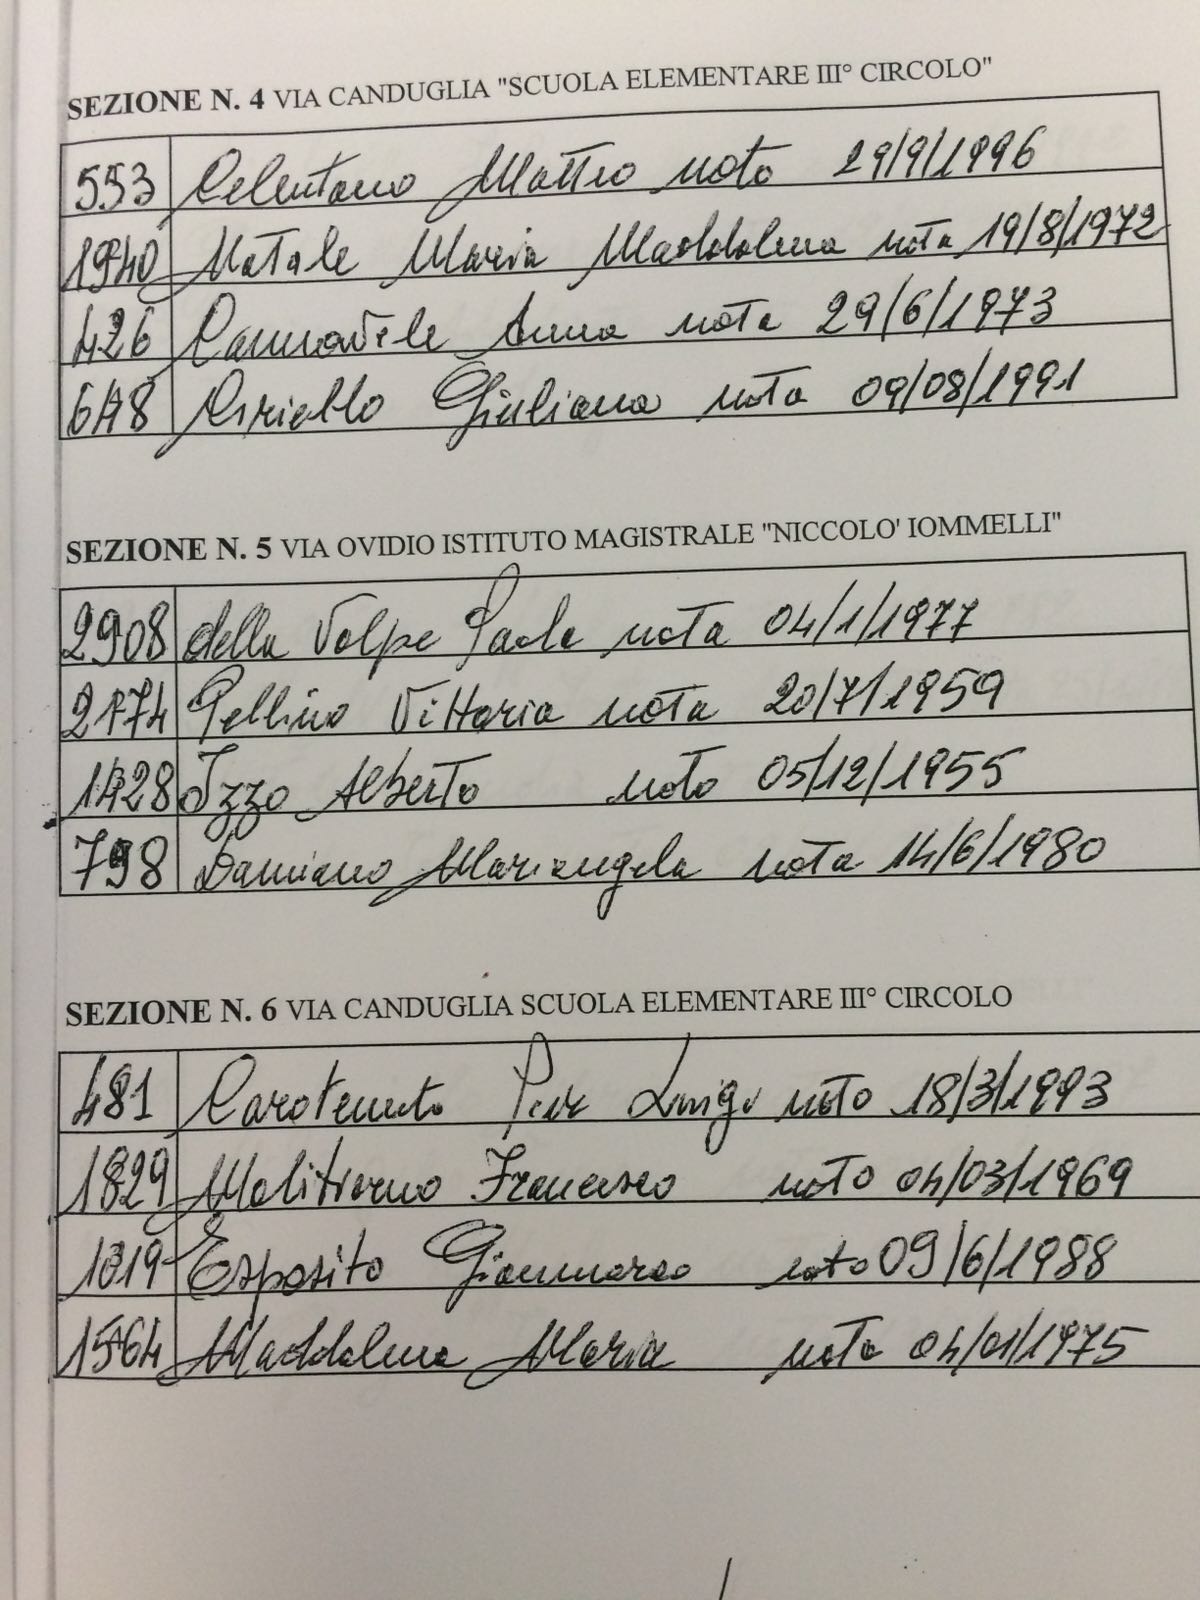 SEZIONE N. 4 VIA CANDUGLIA "SCUOLA ELEMENTARE III° CIRCOLO"
553 Celentano Matteo nato 29/9/1996
1940 Natale Maria Maddalena nata 19/8/1972
426 Cannavale Anna nata 29/6/1973
648 Ciriello Giuliana nata 09/08/1991
SEZIONE N. 5 VIA OVIDIO ISTITUTO MAGISTRALE "NICCOLO' IOMMELLI"
2908 della Volpe Paola nata 04/1/1977
2174 Pellino Vittoria nata 20/7/1959
1428 Izzo Alberto nato 05/12/1955
798 Damiano Mariangela nata 14/6/1980
SEZIONE N. 6 VIA CANDUGLIA SCUOLA ELEMENTARE III° CIRCOLO
481 Carotenuto Pier Luigi nato 18/3/1993
1829 Molitierno Francesco nato 04/03/1969
1019 Esposito Gianmarco nato 09/6/1988
1564 Maddalena Maria nata 04/01/1975